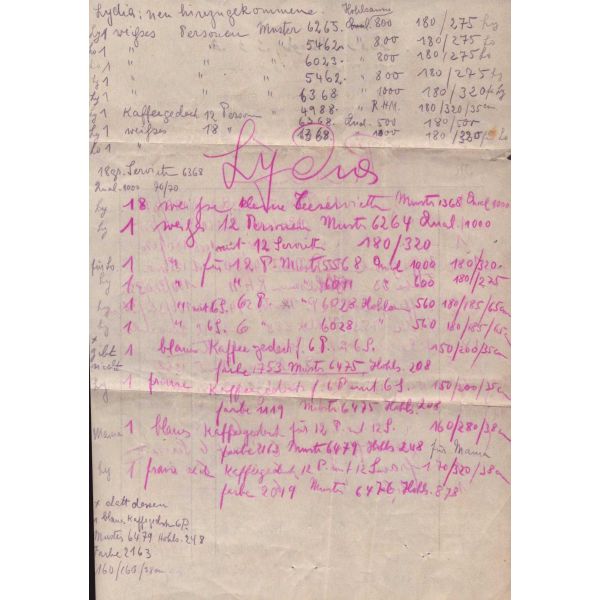 Lydia: neu hinzugekommene: Hohlsaum
Ly 1 weißes Personen Muster 6265. Qual 800 180/275 Ly
Lo 1 " " 5462. " 800 180/275 Lo
" " 6023. " 800 180/275 Lo
Ly 1 " " 5462. " 800 180/275 Ly
Ly 1 " " 6368 " 1000 180/320 Ly
Ly 1 Kaffeegedeck 12 Person 4988. " R.H.M. 180/320/35cm
Ly 1 weißes 18 " 6368. Qual. 500 180/500
Lo 1 " 6368. 1000 180/320 Lo
Lydia
18 gr. Servietten 6368
Qual. 1000 70/70
Ly 18 weisse kleine Teeservietten Muster 1368 Qual 1000
Ly 1 weißes 12 Personen Muster 6264 Qual. 1000
mit 12 Servietten 180/320
für Lo 1 " für 12 P. Muster 5568 Qual 1000 180/320.
Ly 1 " 6 " 600 180/275
Ly 1 " mit 6 S. 6 P. " 6028 Hohlsaum 560 180/185/65cm
Ly 1 " " 6 S. 6 " " 6028 " 560 180/185/65cm
x gibt nicht 1 blaues Kaffeegedeck f. 6 P. u 6 S. 150/200/35cm
farbe 1753 Muster 6475 Hohls. 208
Ly 1 fraise Kaffeegedeck f. 6 P. mit 6 S. 150/200/35cm
farbe 1119 Muster 6475 Hohls. 208
Mama 1 blaues Kaffeegedeck für 12 P. mit 12 S. 160/280/38cm
farbe 2163 Muster 6479 Hohls 248 für Mama
Ly 1 fraise Kaffeegedeck 12 P. mit 12 Servietten 170/320/38cm
farbe 2019 Muster 6476 Hohls. 878
x statt dessen
1 blaues Kaffeegedeck 6 P.
Muster 6479 Hohls. 248
Farbe 2163
160/160/38cm